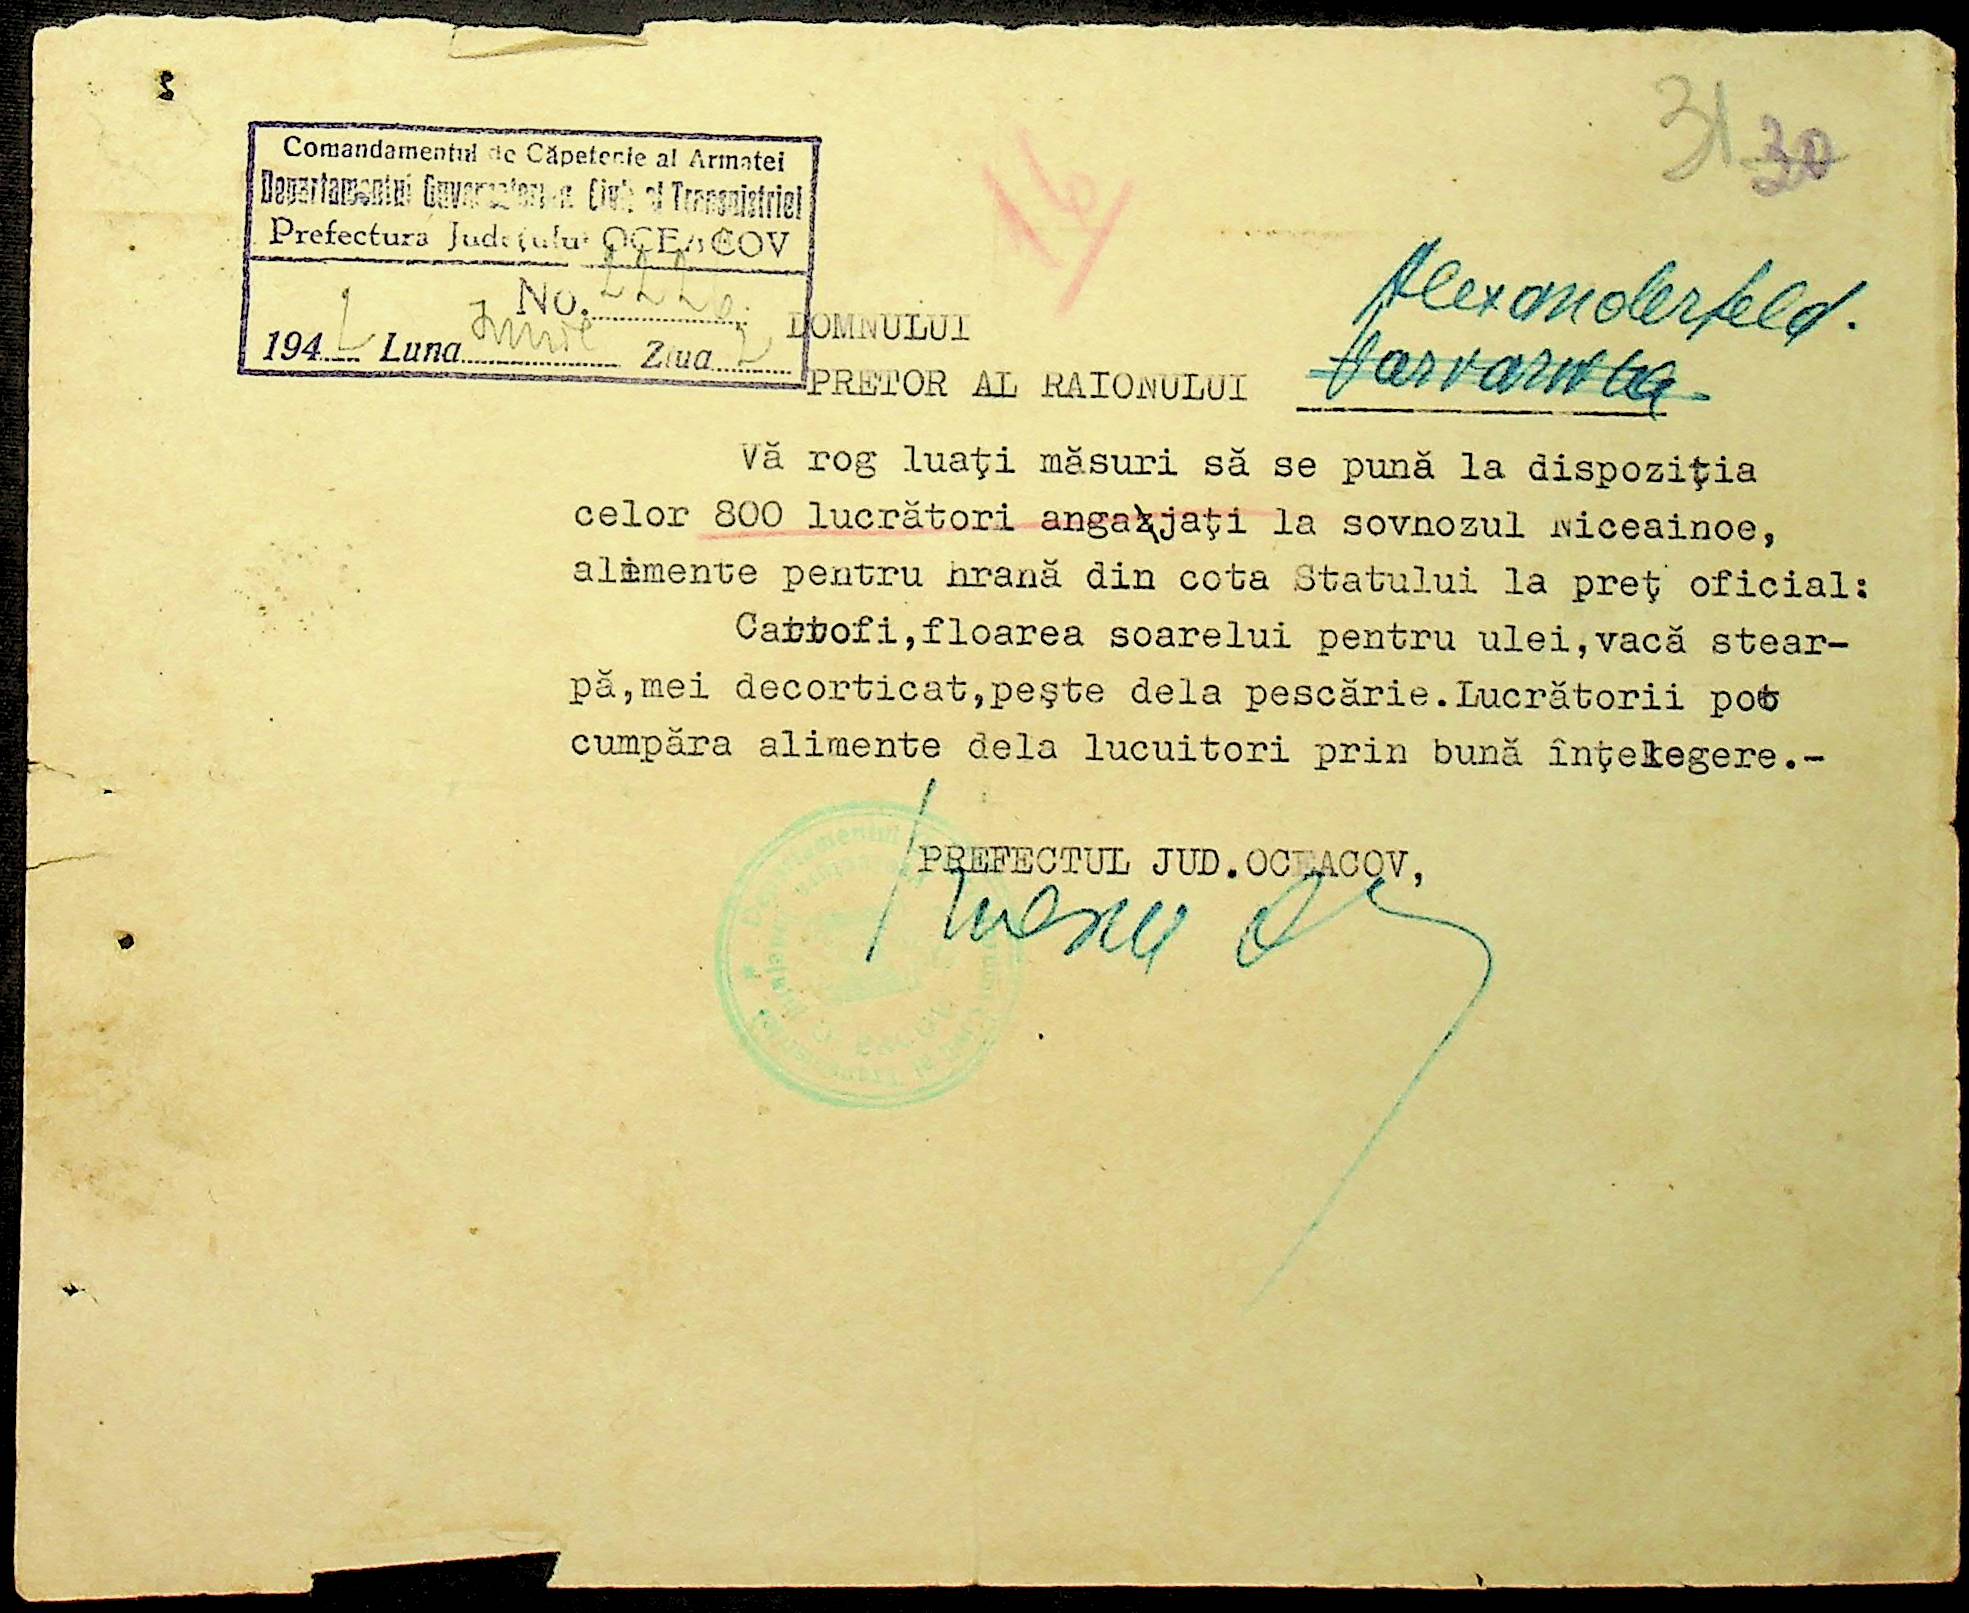 31 30
Comandamentul de Căpetenie al Armatei
Departamentul Guvernatorium Civil al Transnistriei
Prefectura Judeţului OCEACOV
No. 2226.
1942 Luna Iunie Ziua 2
16
DOMNULUI
Alexanderfeld.
PRETOR AL RAIONULUI Varvarovka
Vă rog luaţi măsuri să se pună la dispoziţia
celor 800 lucrători angajaţi la sovhozul Niceainoe,
alimente pentru hrană din cota Statului la preţ oficial:
Cartofi,floarea soarelui pentru ulei,vacă stear-
pă,mei decorticat,peşte dela pescărie.Lucrătorii pot
cumpăra alimente dela lucuitori prin bună înţelegere.-
PREFECTUL JUD.OCEACOV,